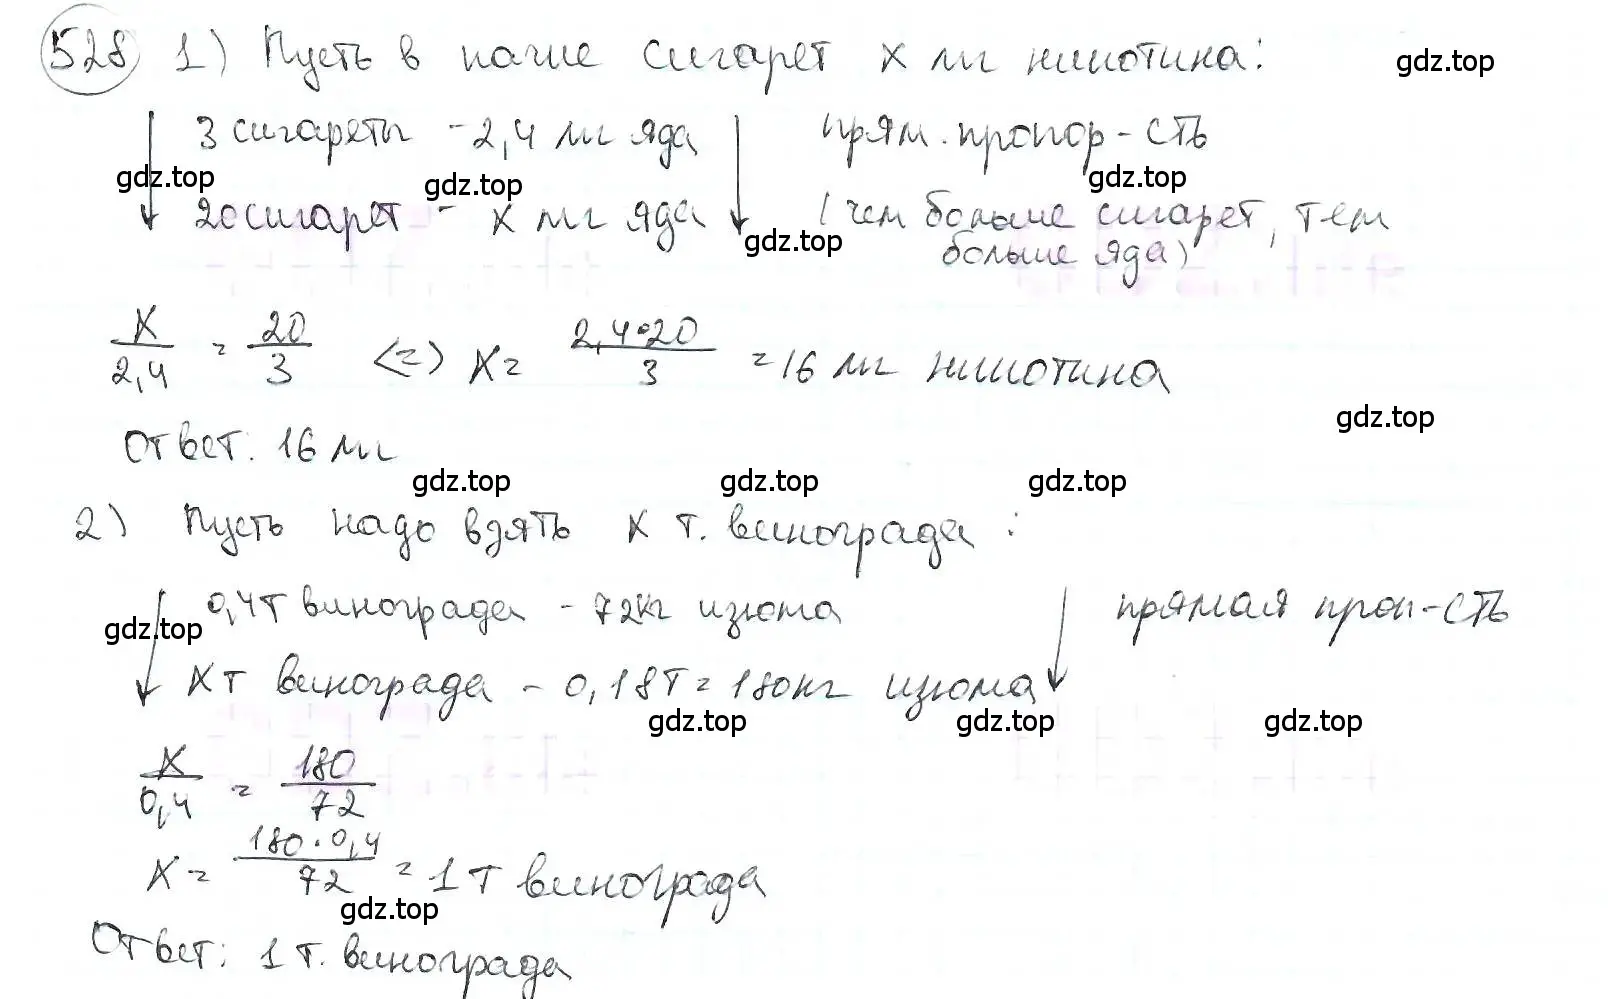 528 1) Пусть в пачке сигарет x мг никотина:
gdz.top
3 сигареты - 2,4 мг яда прям. пропор-сть
gdz.top gdz.top gdz.top
20 сигарет - x мг яда (чем больше сигарет, тем
gdz.top больше яда)
x/2,4 = 20/3 <=> x = 2,4•20/3 = 16 мг никотина
gdz.top
Ответ: 16 мг
gdz.top gdz.top gdz.top
2) Пусть надо взять x т. винограда:
0,4т винограда - 72кг изюма прямая проп-сть
gdz.top
x т винограда - 0,18т = 180кг изюма
gdz.top gdz.top gdz.top
x/0,4 = 180/72
x = 180·0,4/72 = 1 т винограда
gdz.top
Ответ: 1 т. винограда